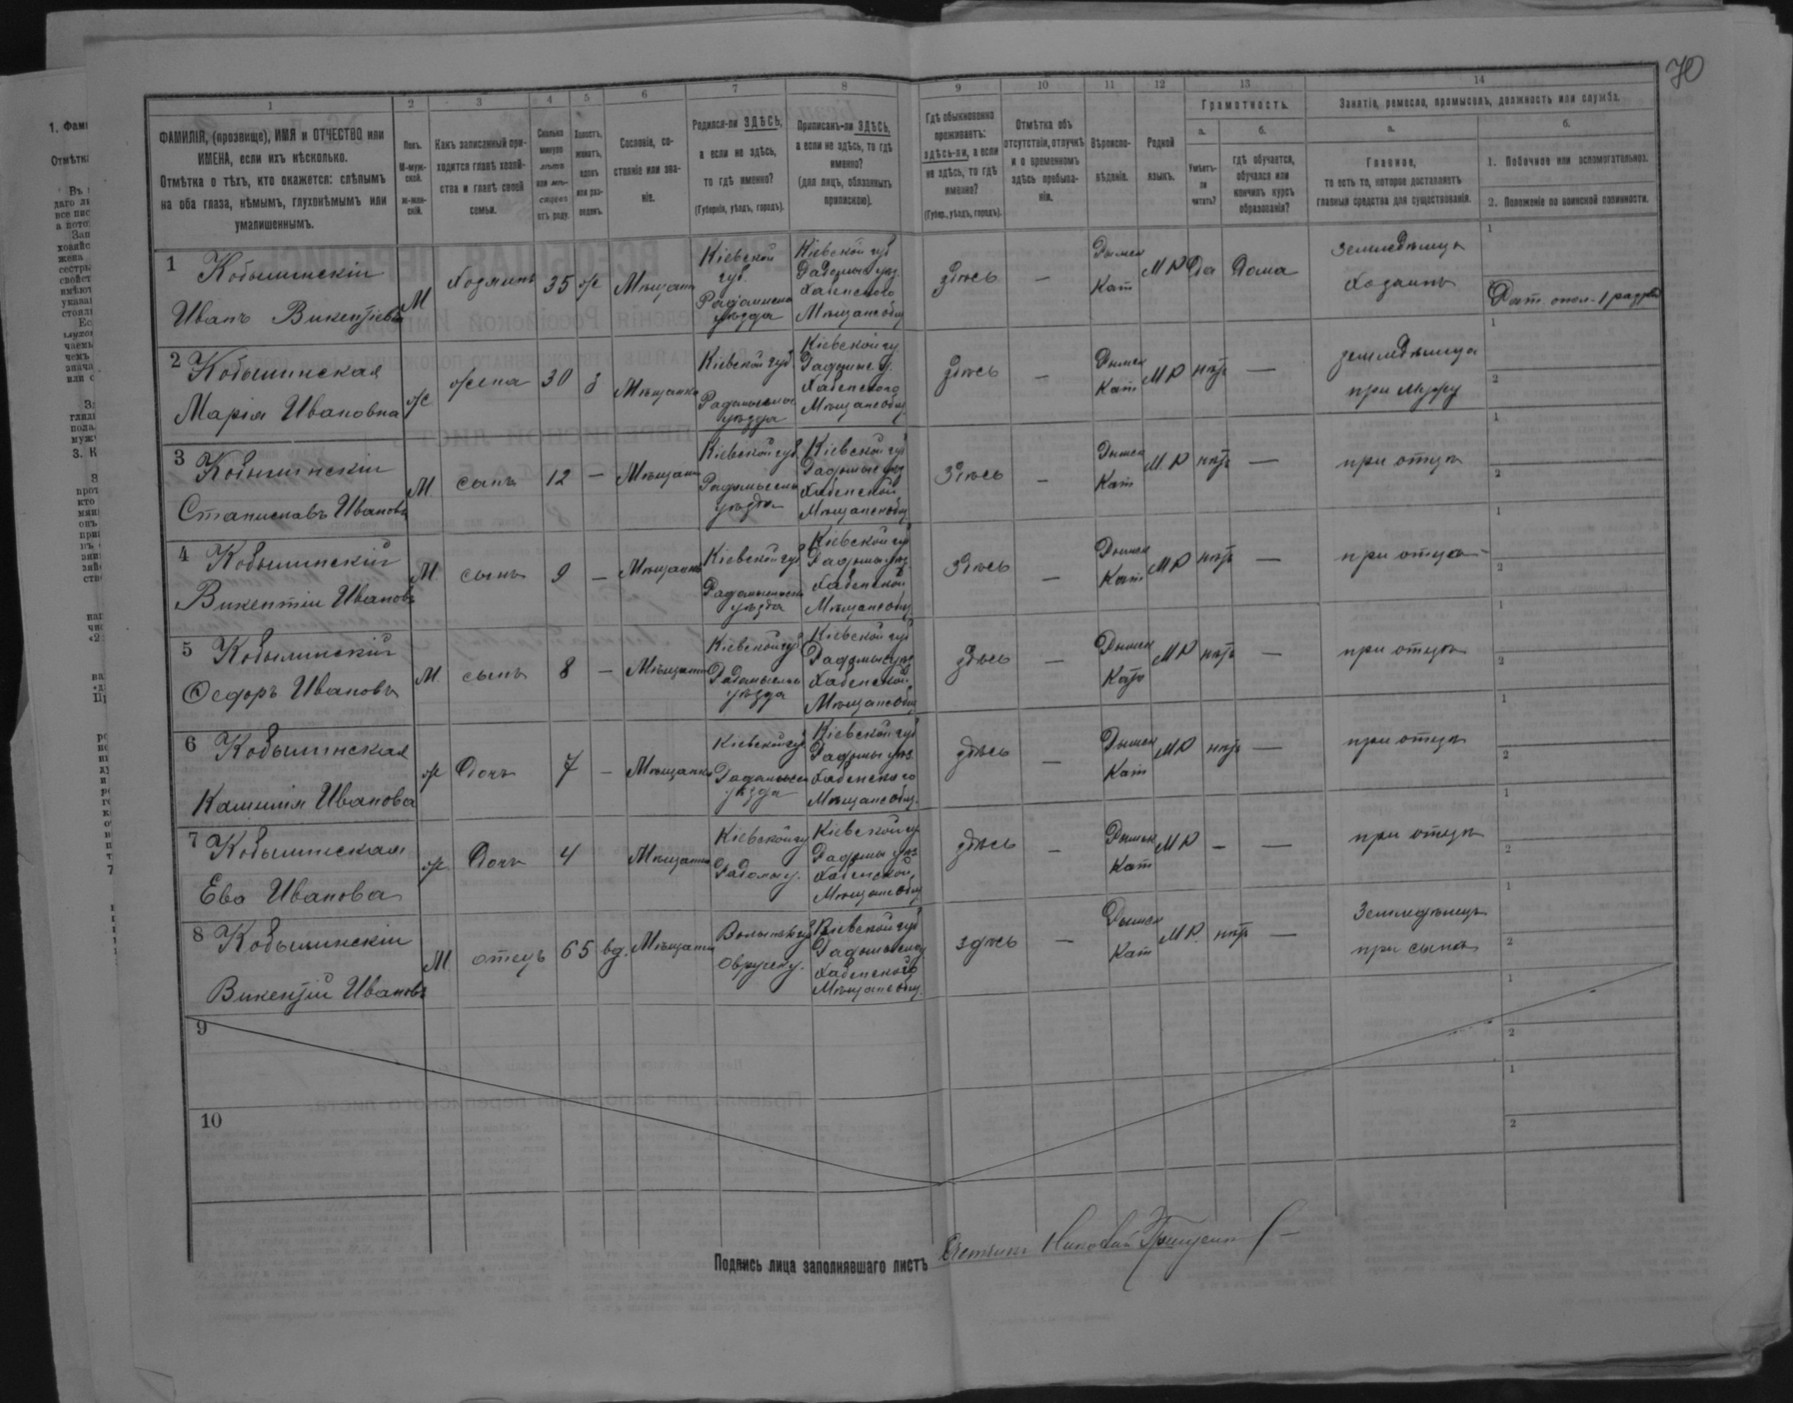 70
1 2 3 4 5 6 7 8 9 10 11 12 13 14
ФАМИЛІЯ, (прозвище), ИМЯ и ОТЧЕСТВО или ИМЕНА, если ихъ нѣсколько.
Отмѣтка о тѣхъ, кто окажется: слѣпымъ на оба глаза, нѣмымъ, глухонѣмымъ или умалишеннымъ.
Полъ.
М-муж-
ской.
ж-жен-
скій.
Какъ записанный при-
ходится главѣ хозяй-
ства и главѣ своей
семьи.
Сколько
минуло
лѣтъ
или мѣ-
сяцевъ
отъ роду.
Холостъ,
женатъ,
вдовъ
или раз-
веденъ.
Сословіе, со-
стояніе или зва-
ніе.
Родился-ли ЗДѢСЬ,
а если не здѣсь,
то гдѣ именно?
(Губернія, уѣздъ, городъ).
Приписанъ-ли ЗДѢСЬ,
а если не здѣсь, то гдѣ
именно?
(для лицъ, обязанныхъ
припискою).
Гдѣ обыкновенно
проживаетъ:
здѣсь-ли, а если
не здѣсь, то гдѣ
именно?
(Губер., уѣздъ, городъ).
Отмѣтка объ
отсутствіи, отлучкѣ
и о временномъ
здѣсь пребыва-
ніи.
Вѣроиспо-
вѣданіе.
Родной
языкъ.
Грамотность.
а.
Умѣетъ-
ли
читать?
б.
гдѣ обучается,
обучался или
кончилъ курсъ
образованія?
Занятія, ремесло, промыселъ, должность или служба.
а.
Главное,
то есть то, которое доставляетъ
главныя средства для существованія.
б.
1. Побочное или вспомогательное.
2. Положеніе по воинской повинности.
1 Кобылинскій
Иванъ Викентіевъ
М
Хозяинъ
35
ж
Мѣщан
Кіевской
губ.
Радомысл
уѣзда
Кіевской губ
Радомыс уѣз
Хабенского
Мѣщан общ
здѣсь
—
Римск
Кат
МР
Да
Дома
земледѣлецъ
Хозяинъ
1
2 Рат. опол. 1 разряд
2 Кобылинская
Марія Ивановна
ж
жена
30
з
Мѣщанка
Кіевской губ
Радомысл
уѣзда
Кіевской гу
Радомыс у.
Хабенского
Мѣщан общ
здѣсь
—
Римск
Кат
МР
нѣтъ
—
земледѣлица
при мужу
1
2
3 Кобылинскій
Станиславъ Ивановъ
М
сынъ
12
—
Мѣщан
Кіевской губ
Радомысл
уѣзда
Кіевской губ
Радомыс уѣз
Хабенской
Мѣщан общ
здѣсь
—
Римск
Кат
МР
нѣтъ
—
при отцѣ
1
2
4 Кобылинскій
Викентій Ивановъ
М
сынъ
9
—
Мѣщан
Кіевской губ
Радомысл
уѣзда
Кіевской губ
Радомыс уѣз
Хабенской
Мѣщан общ
здѣсь
—
Римск
Кат
МР
нѣтъ
—
при отцѣ
1
2
5 Кобылинскій
Федоръ Ивановъ
М
сынъ
8
—
Мѣщан
Кіевской губ
Радомысл
уѣзда
Кіевской губ
Радомыс уѣз
Хабенской
Мѣщан общ
здѣсь
—
Римск
Кат
МР
нѣтъ
—
при отцѣ
1
2
6 Кобылинская
Камилія Иванова
ж
Дочь
7
—
Мѣщанка
Кіевской губ
Радомысл
уѣзда
Кіевской губ
Радомы уѣз
Хабенского
Мѣщан общ
здѣсь
—
Римск
Кат
МР
нѣтъ
—
при отцѣ
1
2
7 Кобылинская
Ева Иванова
ж
Дочь
4
Мѣщанка
Кіевской гу
Радом у.
Кіевской гу
Радомы уѣз
Хабенской
Мѣщан общ
здѣсь
—
Римск
Кат
МР
—
—
при отцѣ
1
2
8 Кобылинскій
Викентій Ивановъ
М
отецъ
65
вд.
Мѣщан
Волынск г
Овручск у.
Кіевской губ
Радомысл у
Хабенского
Мѣщан общ
здѣсь
—
Римск
Кат
МР.
нѣтъ
—
Земледѣлецъ
при сынѣ
1
2
9
1
2
10
1
2
Подпись лица заполнявшаго листъ Счетчикъ Николай